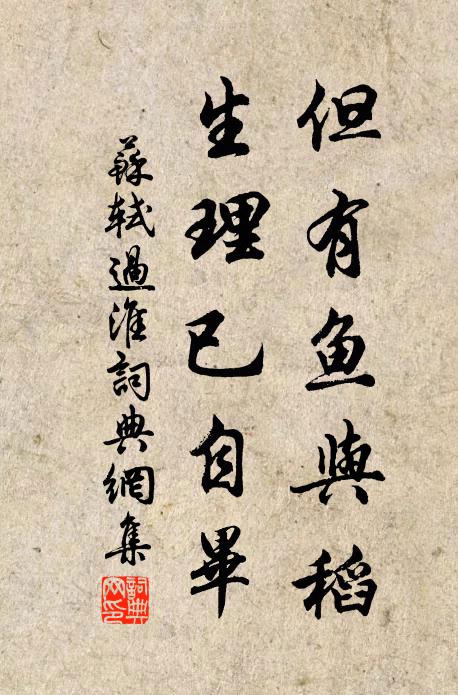 但有鱼與稻
生理已自畢
蘇軾過淮詞典網集
詞典
网印